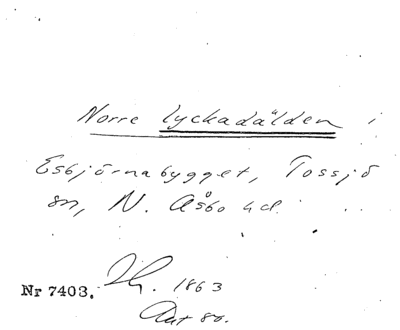 Norre lyckadälden i
Esbjörnabygget, Tossjö
sn, N. Åsbo hd.
1863
Nr 7403.
Ant 80.